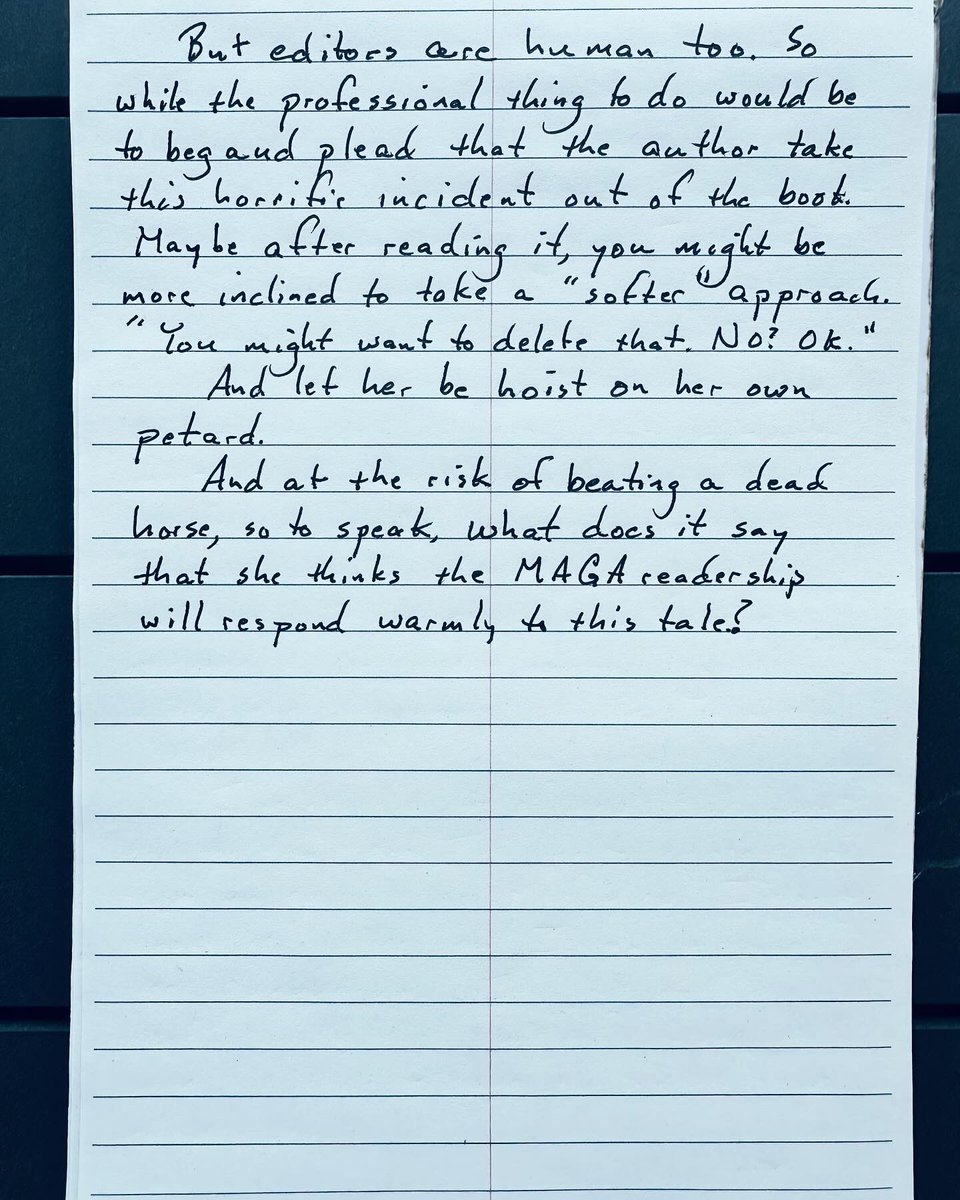 But editors are human too. So
while the professional thing to do would be
to beg and plead that the author take
this horrific incident out of the book.
Maybe after reading it, you might be
more inclined to take a "softer" approach.
"You might want to delete that. No? Ok."
And let her be hoist on her own
petard.
And at the risk of beating a dead
horse, so to speak, what does it say
that she thinks the MAGA readership
will respond warmly to this tale?